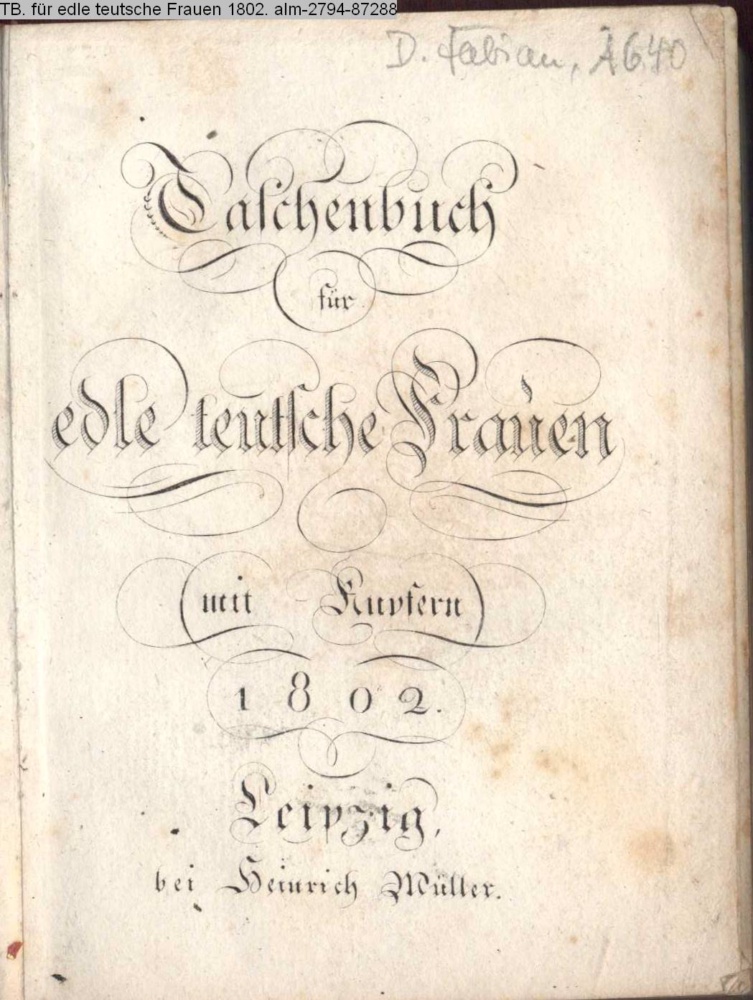 TB. für edle teutsche Frauen 1802. alm-2794-87288
D. Fabian, A640
Taschenbuch
für
edle teutsche Frauen
mit Kupfern
1802.
Leipzig,
bei Heinrich Müller.